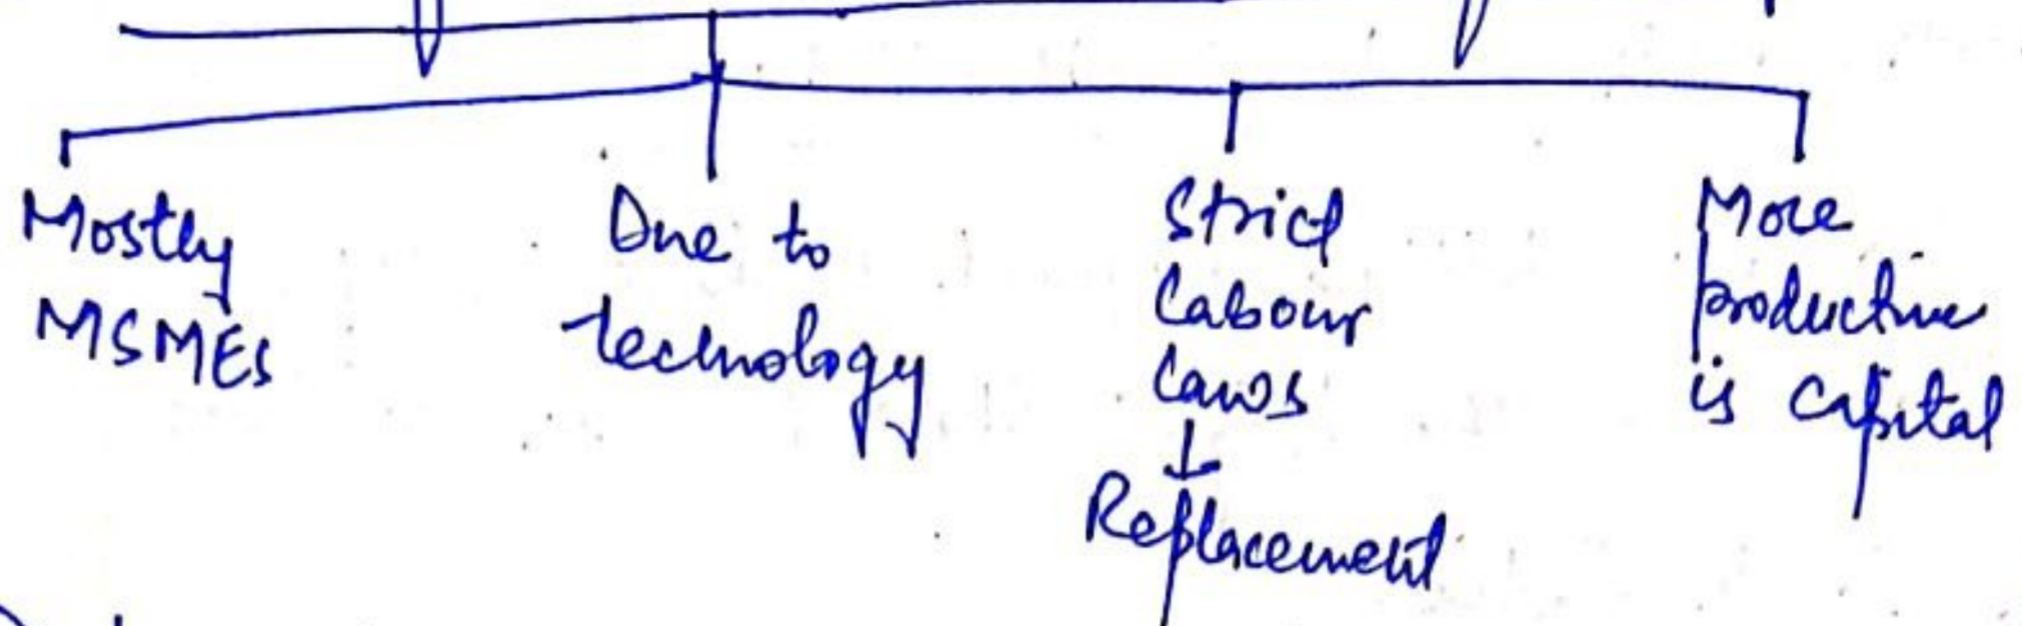 Mostly
MSMEs
Due to
technology
Strict
Labour
Laws
↓
Replacement
More
productive
is capital